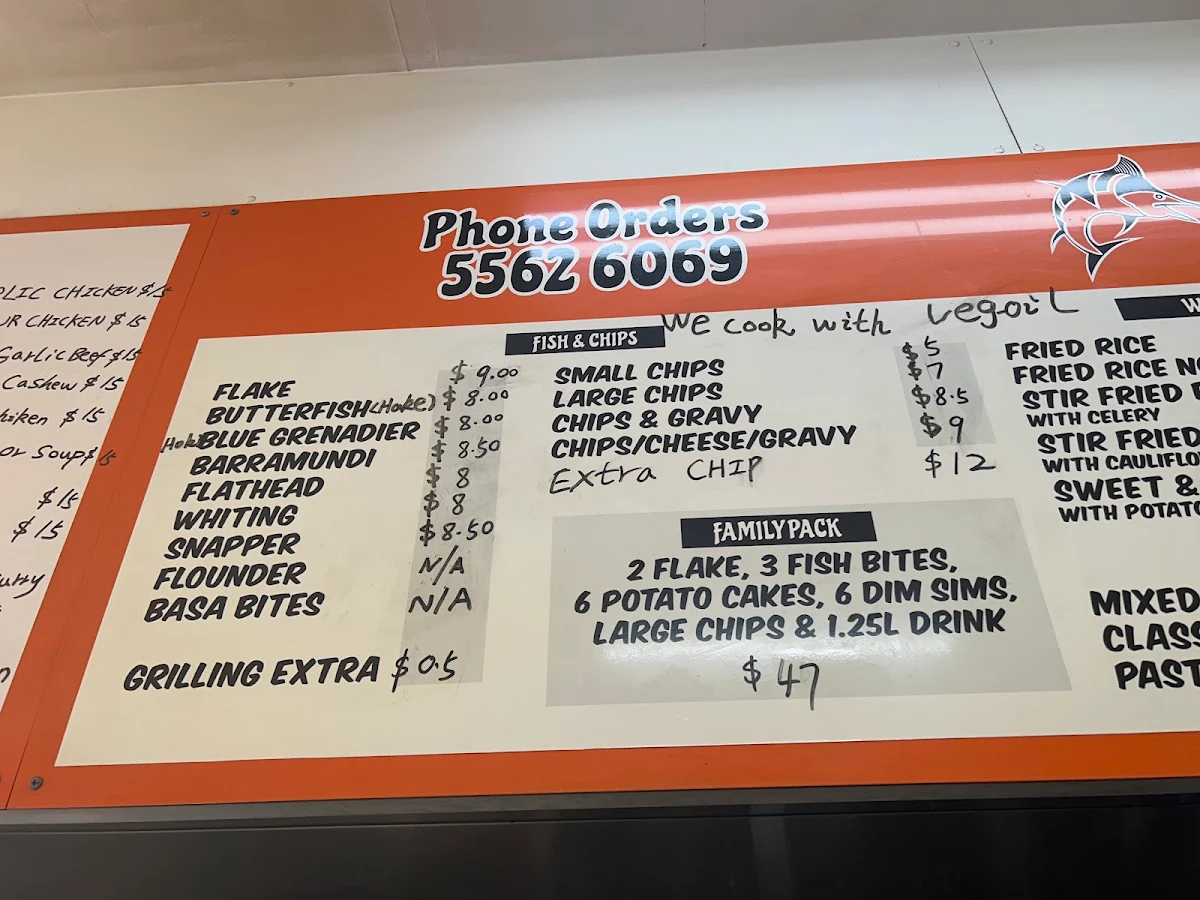 Phone Orders
5562 6069
CHICKEN $15
CHICKEN $15
Garlic Beef $15
Cashew $15
$15
or Soup $15
$15
$15
FISH & CHIPS
We cook with vegoil
FLAKE $9.00
BUTTERFISH (Hoke) $8.00
Hoki BLUE GRENADIER $8.00
BARRAMUNDI $8.50
FLATHEAD $8
WHITING $8
SNAPPER $8.50
FLOUNDER N/A
BASA BITES N/A
GRILLING EXTRA $0.5
SMALL CHIPS $5
LARGE CHIPS $7
CHIPS & GRAVY $8.5
CHIPS/CHEESE/GRAVY $9
Extra CHIP $12
FAMILY PACK
2 FLAKE, 3 FISH BITES,
6 POTATO CAKES, 6 DIM SIMS,
LARGE CHIPS & 1.25L DRINK
$47
FRIED RICE
FRIED RICE
STIR FRIED
WITH CELERY
STIR FRIED
WITH
SWEET &
WITH
MIXED